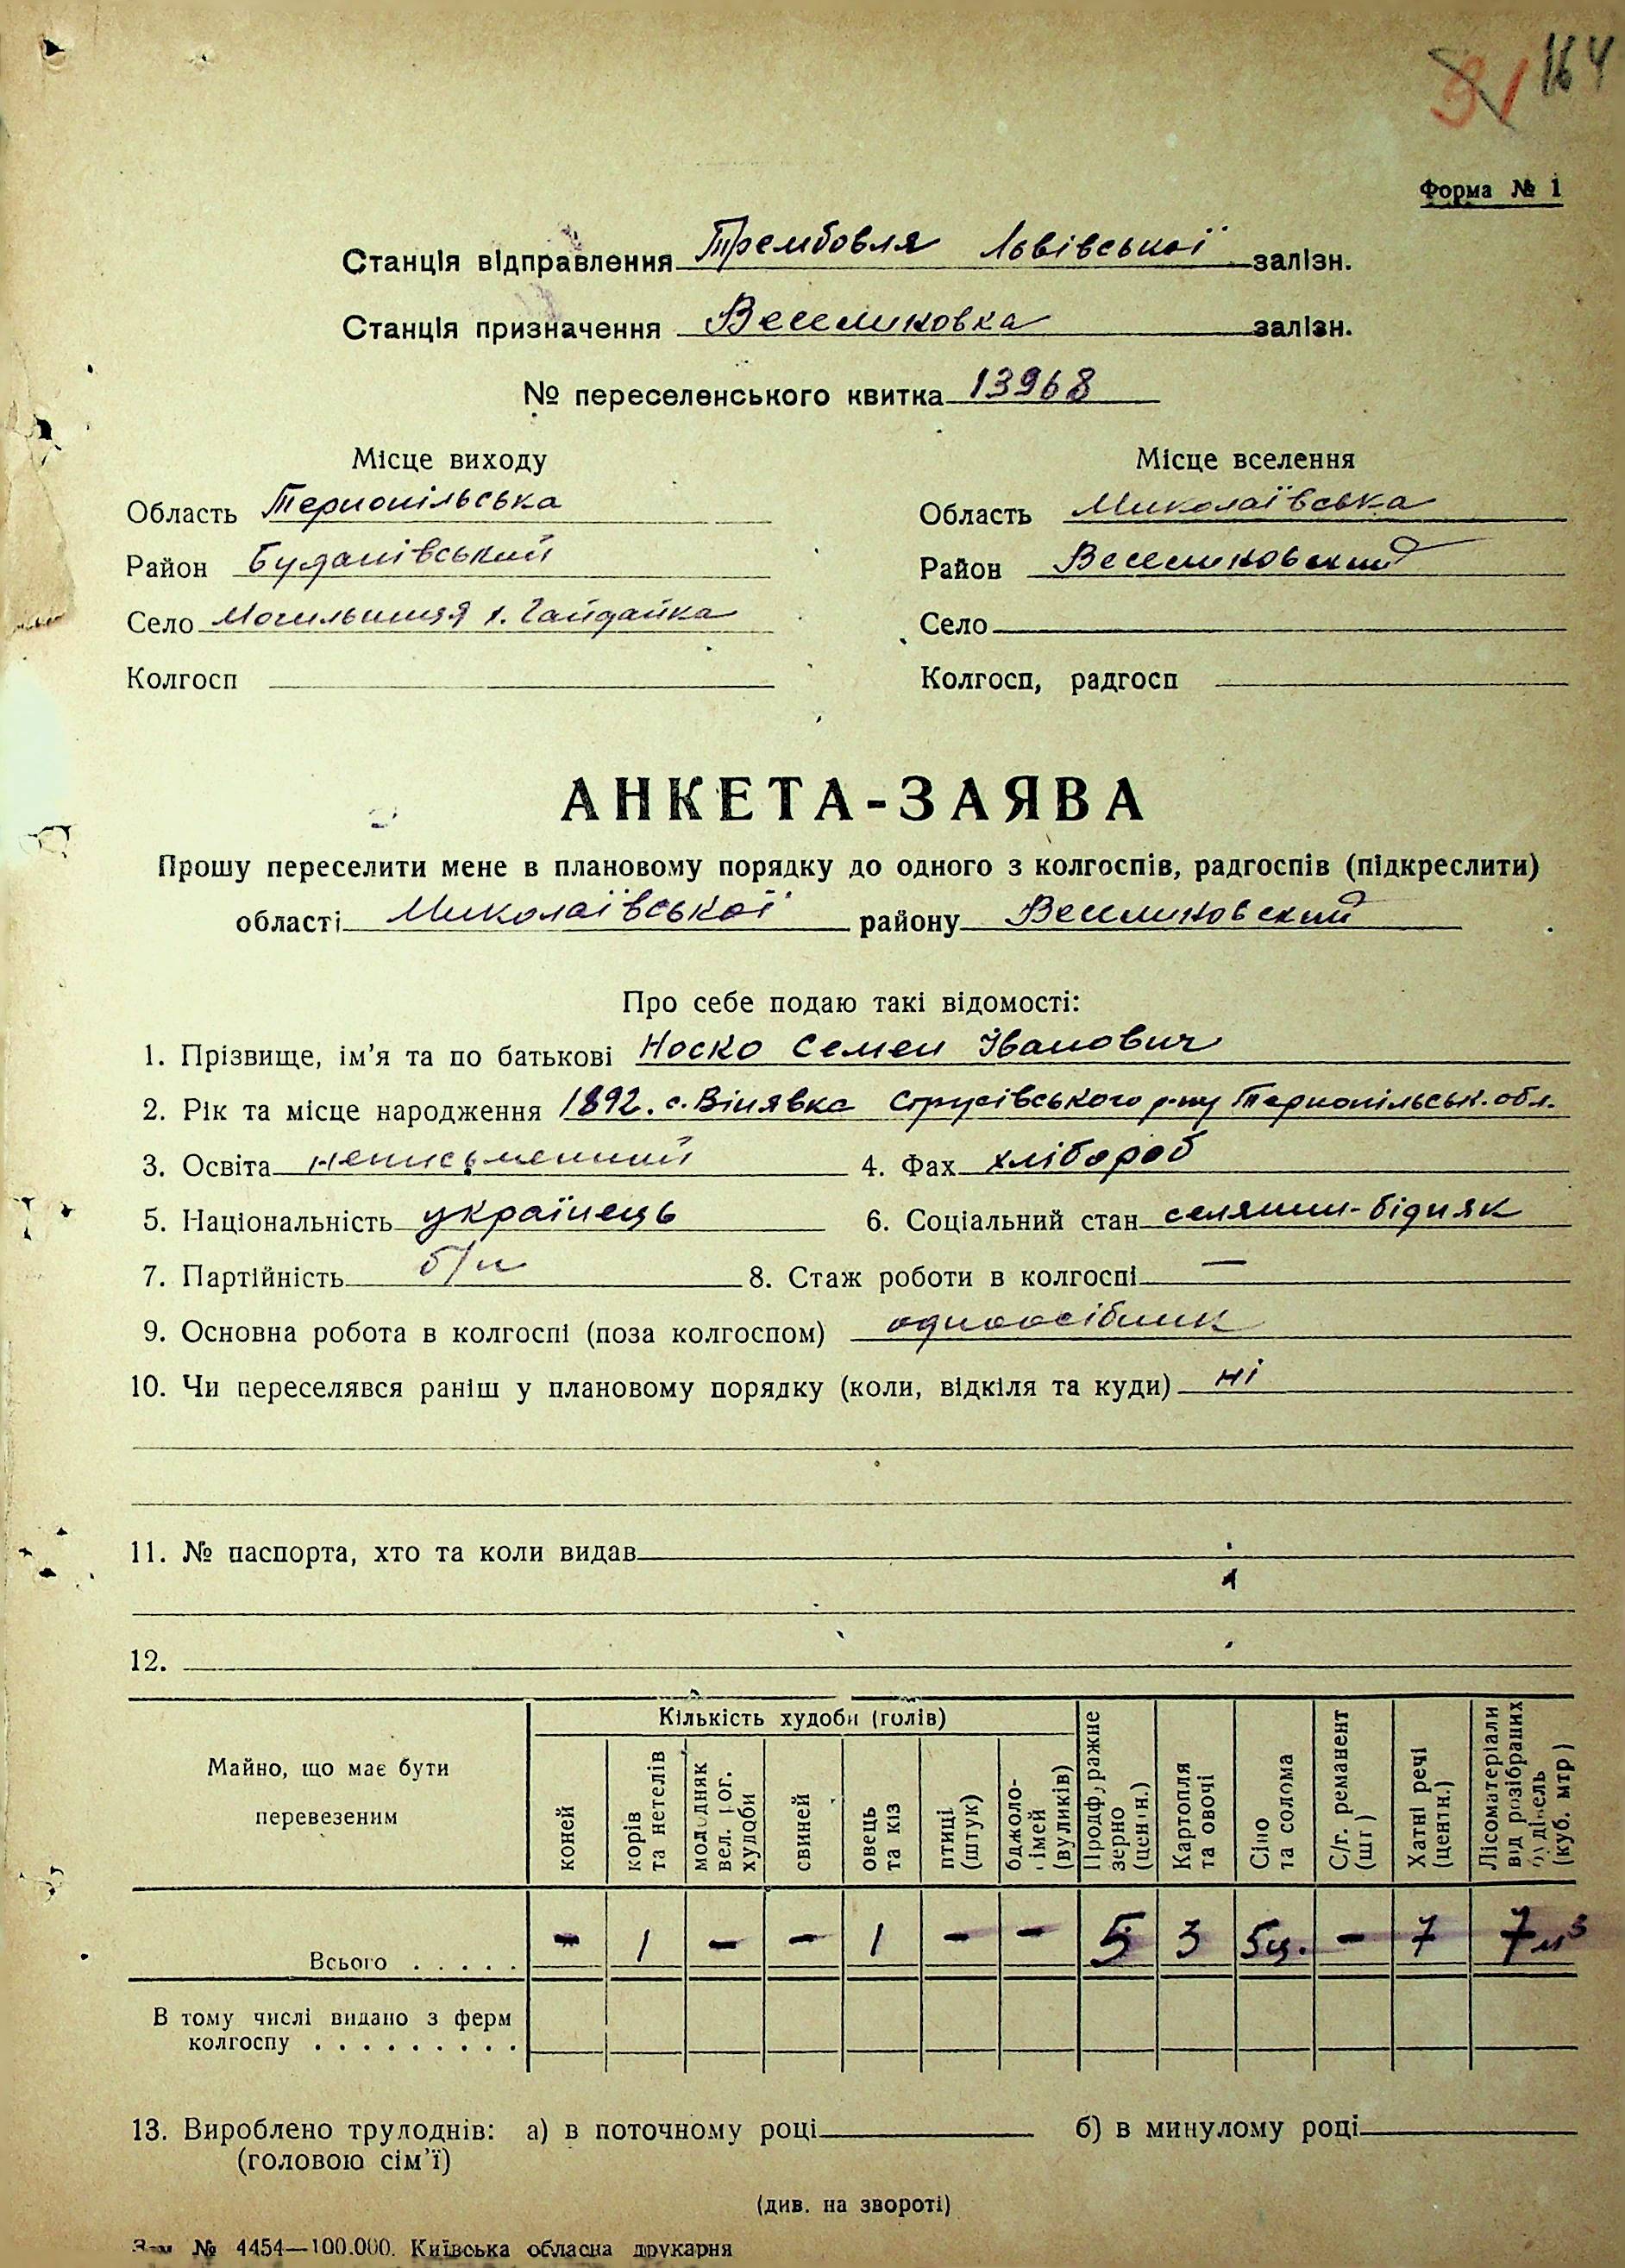 91 164
Форма № 1
Станція відправлення Трембовля Львівської залізн.
Станція призначення Веселиновка залізн.
№ переселенського квитка 13968
Місце виходу Місце вселення
Область Тернопільська Область Миколаївська
Район Буданівський Район Веселиновский
Село Могильниця х. Гайдайка Село
Колгосп Колгосп, радгосп
АНКЕТА-ЗАЯВА
Прошу переселити мене в плановому порядку до одного з колгоспів, радгоспів (підкреслити)
області Миколаївської району Веселиновский
Про себе подаю такі відомості:
1. Прізвище, ім'я та по батькові Носко Семен Іванович
2. Рік та місце народження 1892. с. Вінявка Струсівського р-ну Тернопільськ. обл.
3. Освіта неписьменний 4. Фах хлібороб
5. Національність українець 6. Соціальний стан селянин-бідняк
7. Партійність б/п 8. Стаж роботи в колгоспі —
9. Основна робота в колгоспі (поза колгоспом) одноосібник
10. Чи переселявся раніш у плановому порядку (коли, відкіля та куди) ні
11. № паспорта, хто та коли видав
12.
Майно, що має бути перевезеним
Кількість худоби (голів)
коней
корів та нетелів
молодняк вел. рог. худоби
свиней
овець та кіз
птиці (штук)
бджолосімей (вуликів)
Продфуражне зерно (центн.)
Картопля та овочі
Сіно та солома
С/г. реманент (шт)
Хатні речі (центн.)
Лісоматеріали від розібраних будівель (куб. мтр)
Всього . . . . . - 1 - - 1 - - 5 3 5ц. - 7 7 м³
В тому числі видано з ферм
колгоспу . . . . . . . . .
13. Вироблено трудоднів: а) в поточному році б) в минулому році
(головою сім'ї)
(див. на звороті)
Зам № 4454—100.000. Київська обласна друкарня